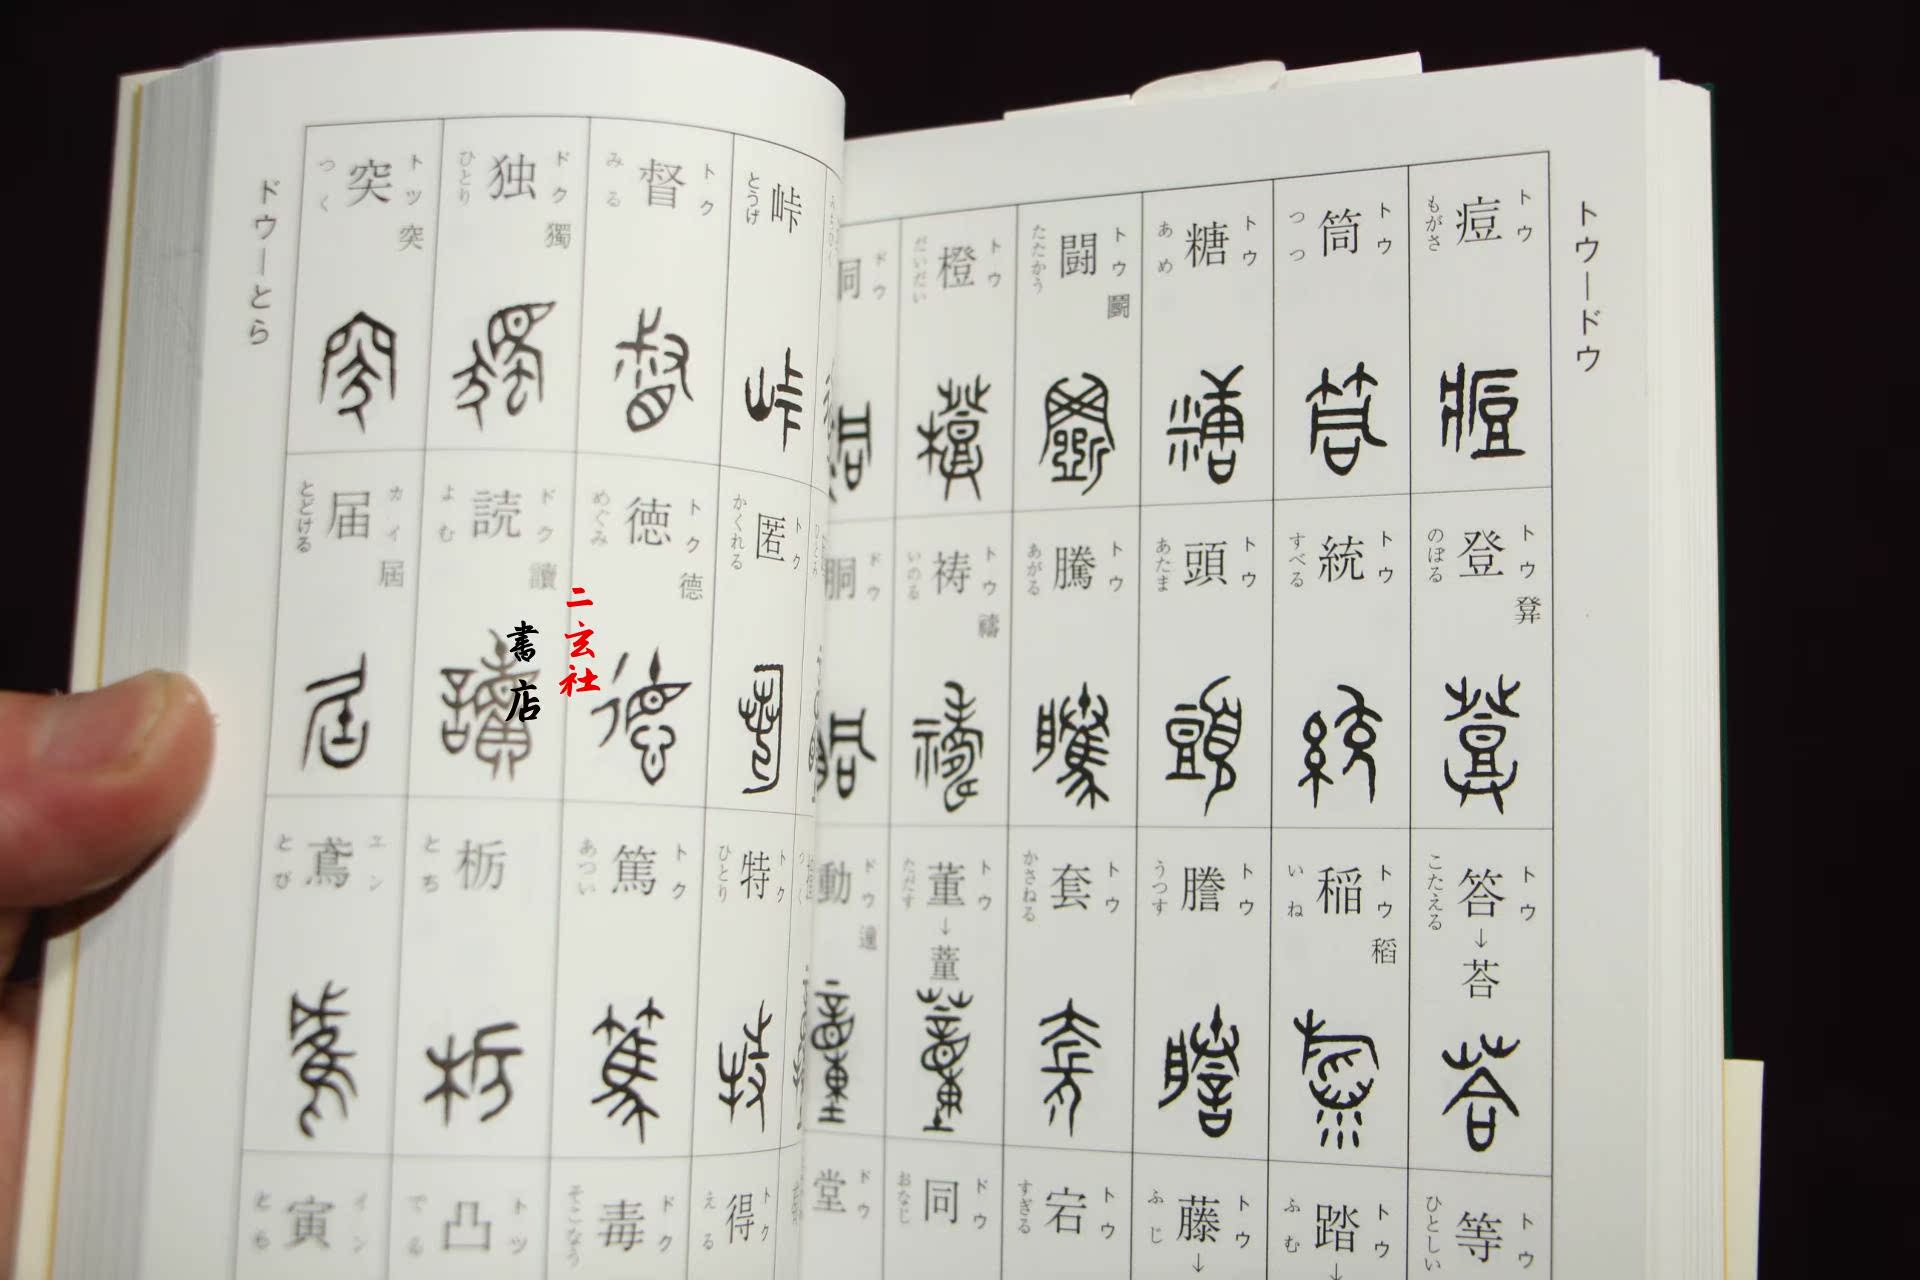 トウードウ
トウ 痘 もがさ
トウ 登 のぼる 發
トウ 答 こたえる → 荅
トウ 等 ひとしい
トウ 筒 つつ
トウ 統 すべる
トウ 稲 いね 稻
トウ 踏 ふむ ↓
トウ 糖 あめ
トウ 頭 あたま
トウ 謄 うつす
トウ 藤 ふじ ↓
トウ 闘 たたかう 鬭
トウ 騰 あがる
トウ 套 かさねる
トウ 宕 すぎる
トウ 橙 だいだい
トウ 祷 いのる 禱
トウ 董 ただす ↓ 蕫
ドウ 同 おなじ
ドウ 洞
ドウ 胴
ドウ 動
ドウ 堂
峠 とうげ
トク 匿 かくれる
トク 特 ひとり
トク 得 える
トク 督 みる
トク 徳 めぐみ 德
トク 篤 あつい
ドク 毒 そこなう
ドク 独 ひとり 獨
ドク 読 よむ 讀
栃 とち
トツ 凸 でる
トツ 突 つく 突
カイ 届 とどける 屆
エン 鳶 とび
イン 寅 とら
ドウーとら
二玄社
書店